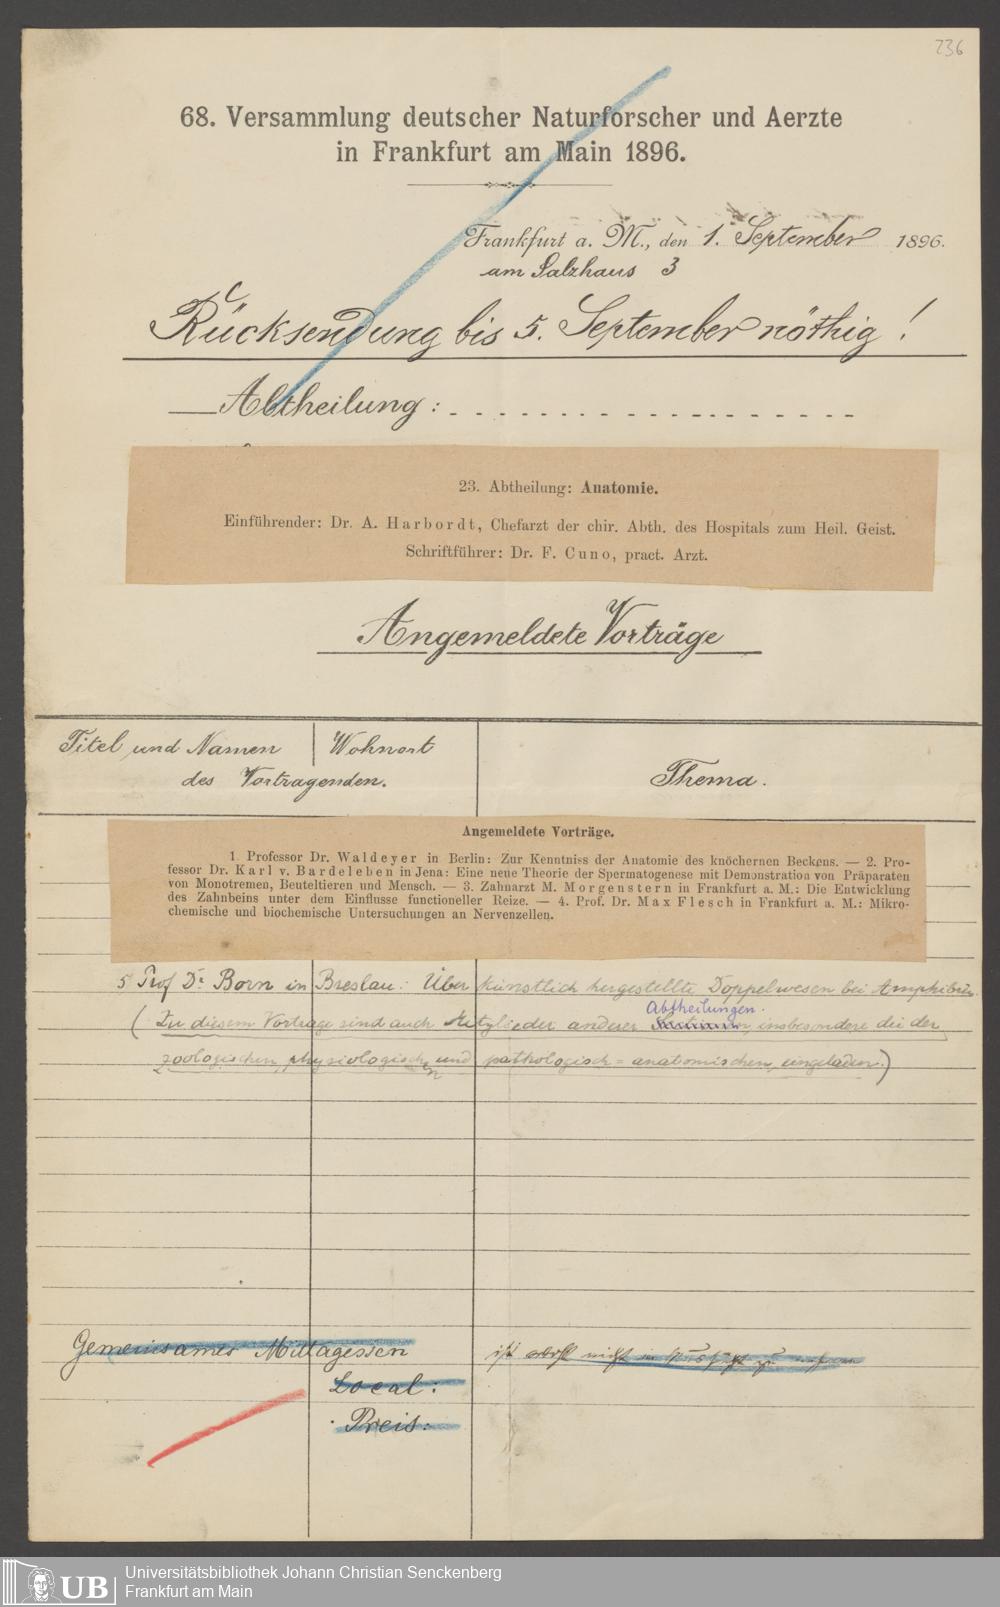 236
68. Versammlung deutscher Naturforscher und Aerzte
in Frankfurt am Main 1896.
Frankfurt a. M., den 1. September 1896.
am Salzhaus 3
Rücksendung bis 5. September nöthig!
Abtheilung:
23. Abtheilung: Anatomie.
Einführender: Dr. A. Harbordt, Chefarzt der chir. Abth. des Hospitals zum Heil. Geist.
Schriftführer: Dr. F. Cuno, pract. Arzt.
Angemeldete Vorträge
Titel und Namen | Wohnort
des Vortragenden.
Thema.
Angemeldete Vorträge.
1. Professor Dr. Waldeyer in Berlin: Zur Kenntniss der Anatomie des knöchernen Beckens. — 2. Pro-
fessor Dr. Karl v. Bardeleben in Jena: Eine neue Theorie der Spermatogenese mit Demonstration von Präparaten
von Monotremen, Beuteltieren und Mensch. — 3. Zahnarzt M. Morgenstern in Frankfurt a. M.: Die Entwicklung
des Zahnbeins unter dem Einflusse functioneller Reize. — 4. Prof. Dr. Max Flesch in Frankfurt a. M.: Mikro-
chemische und biochemische Untersuchungen an Nervenzellen.
5 Prof Dr. Born in Breslau: Über künstlich hergestellte Doppelwesen bei Amphibien.
Abtheilungen.
(Zu diesem Vortrage sind auch Mitglieder anderer Sectionen, insbesondere die der
zoologischen, physiologischen und pathologisch=anatomischen, eingeladen.)
Gemeinsames Mittagessen
ist wohl nicht in
Local:
Preis:
Universitätsbibliothek Johann Christian Senckenberg
Frankfurt am Main
UB